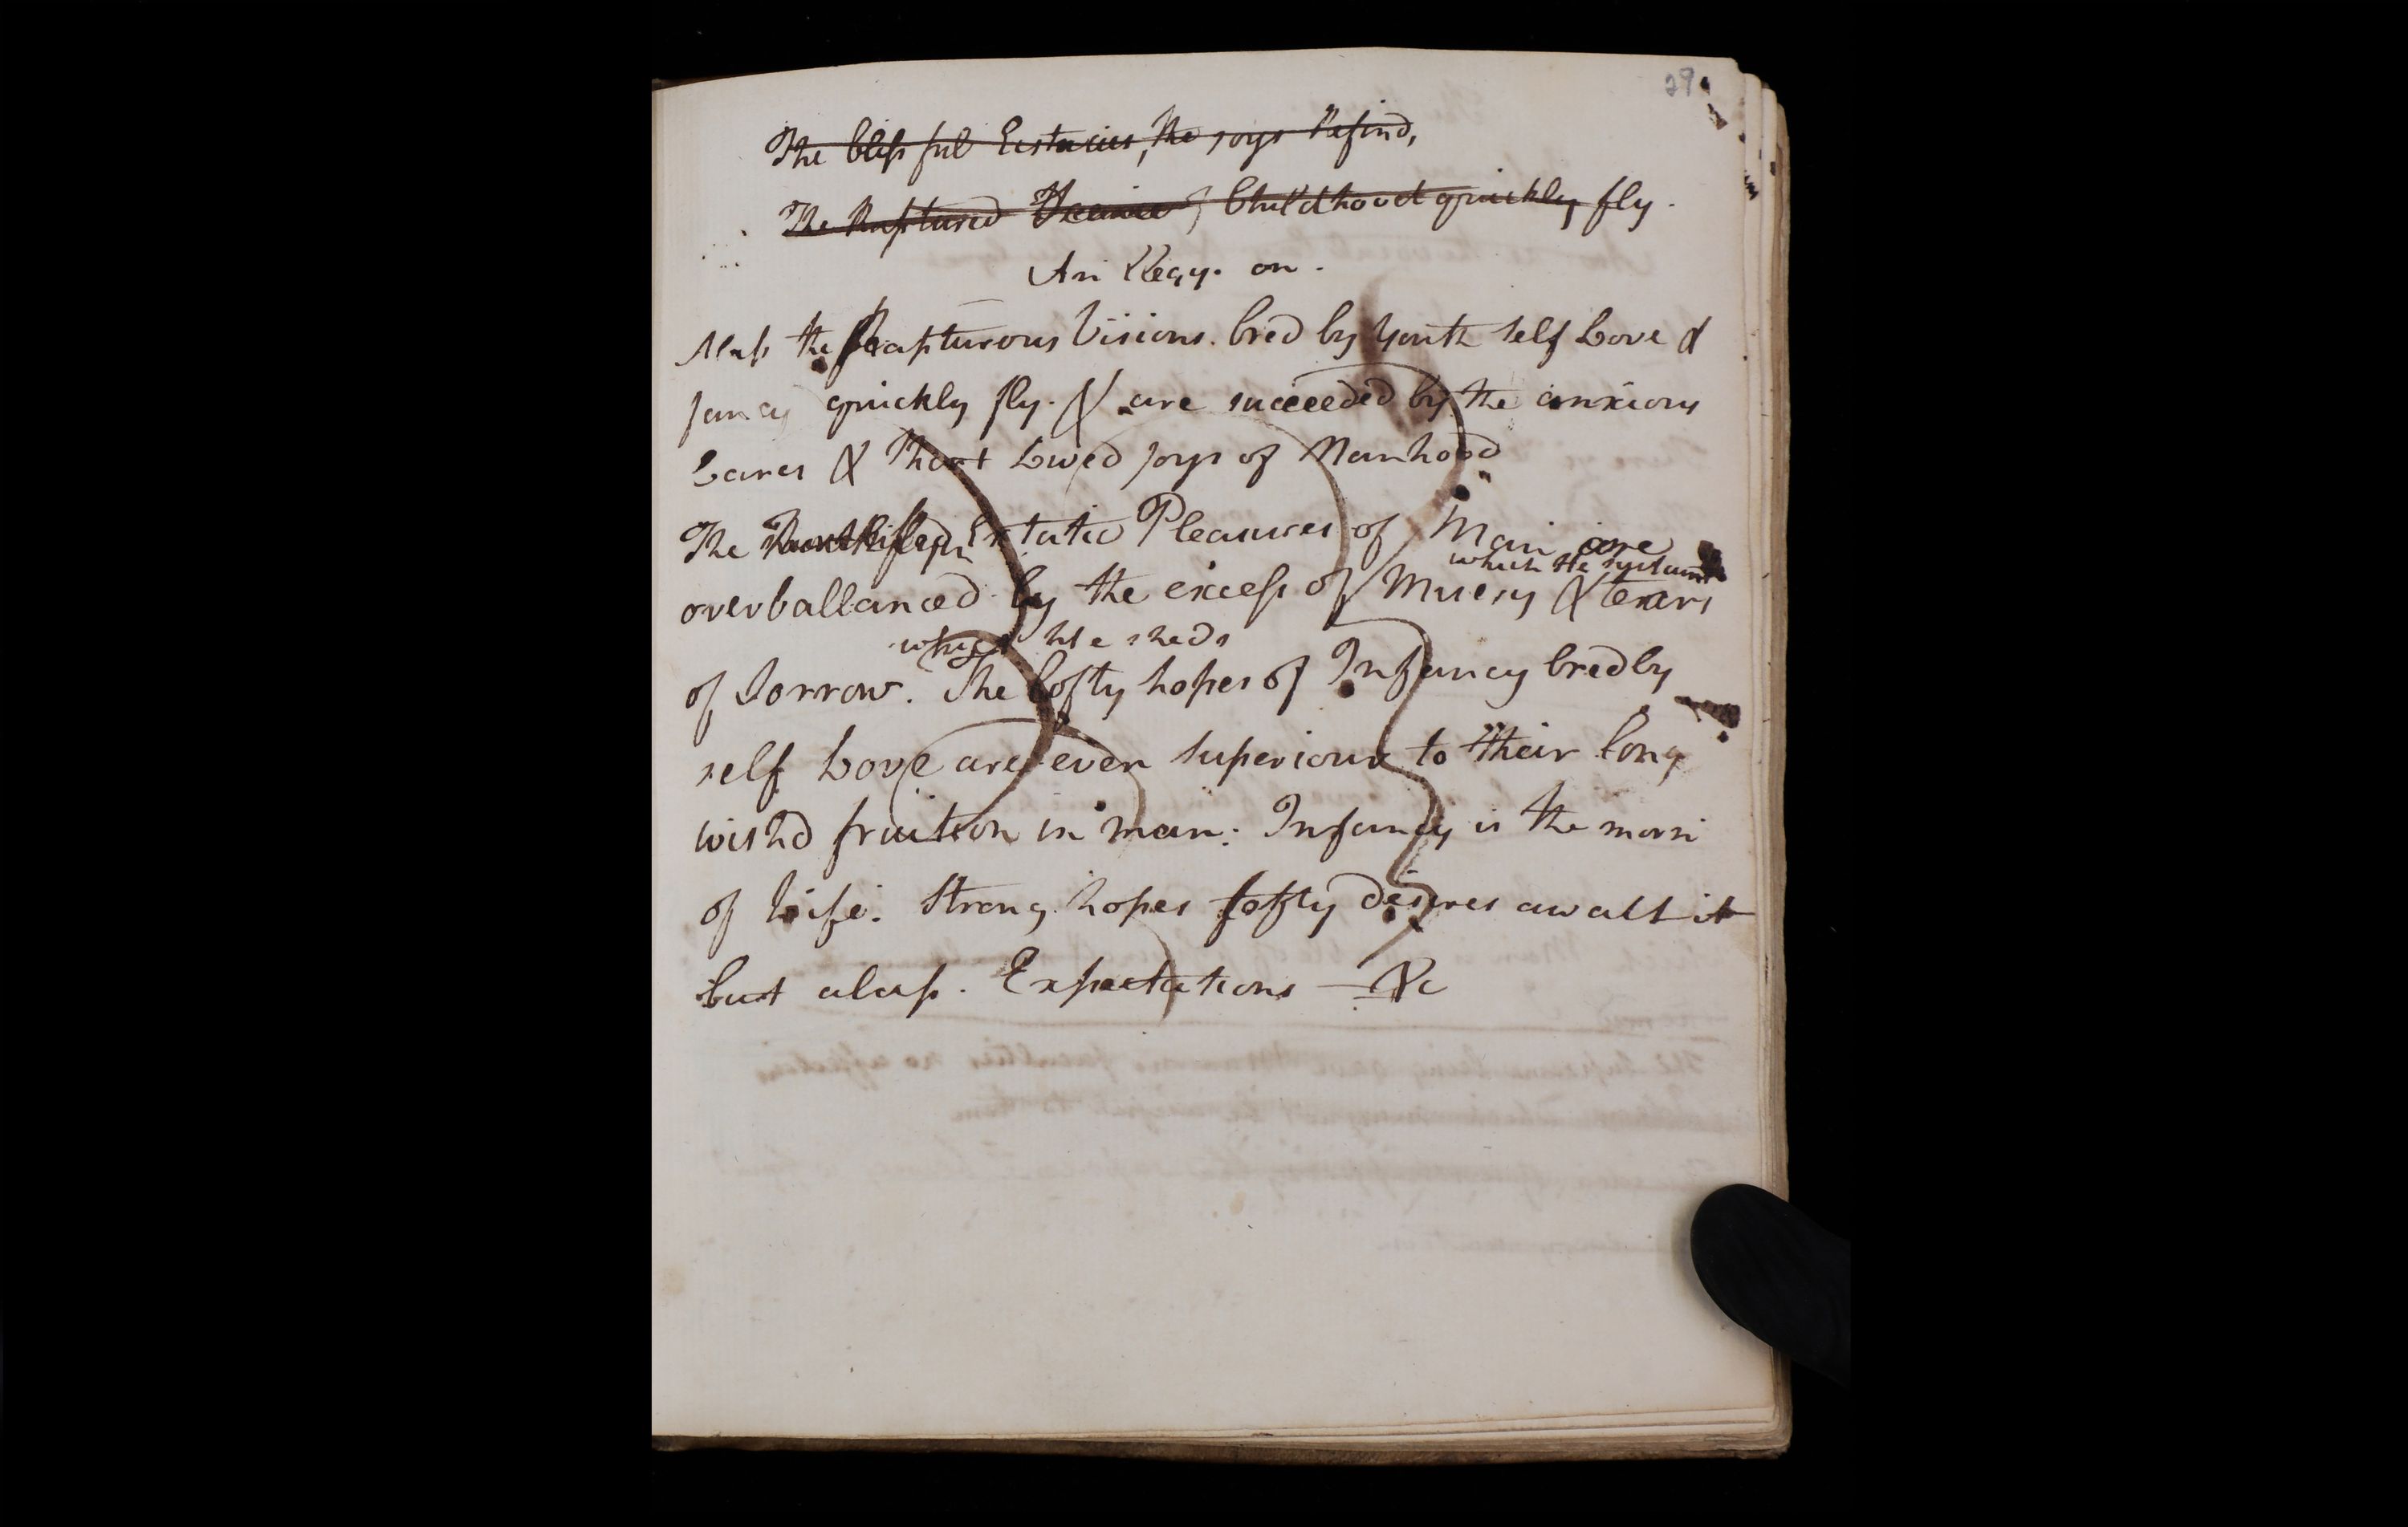 29
The blissful Exstacies, the joys Refind,
The Raptured of Childhood quickly fly.
An Elegy. on.
Alass the Rapturous Visions. bred by Youth self Love &
fancy quickly fly. & are succeeded by the anxious
Cares & Short Lived joys of Manhood
The Extatic Pleasures of Man are
which He
overballanced by the excess of Misery & tears
which He sheds
of Sorrow. The Lofty hopes of Infancy bred by
self Love are even superiour to their long
wishd fruition in man: Infancy is the morn
of Life. Strong hopes lofty desires await it
but alass. Expectations — &c